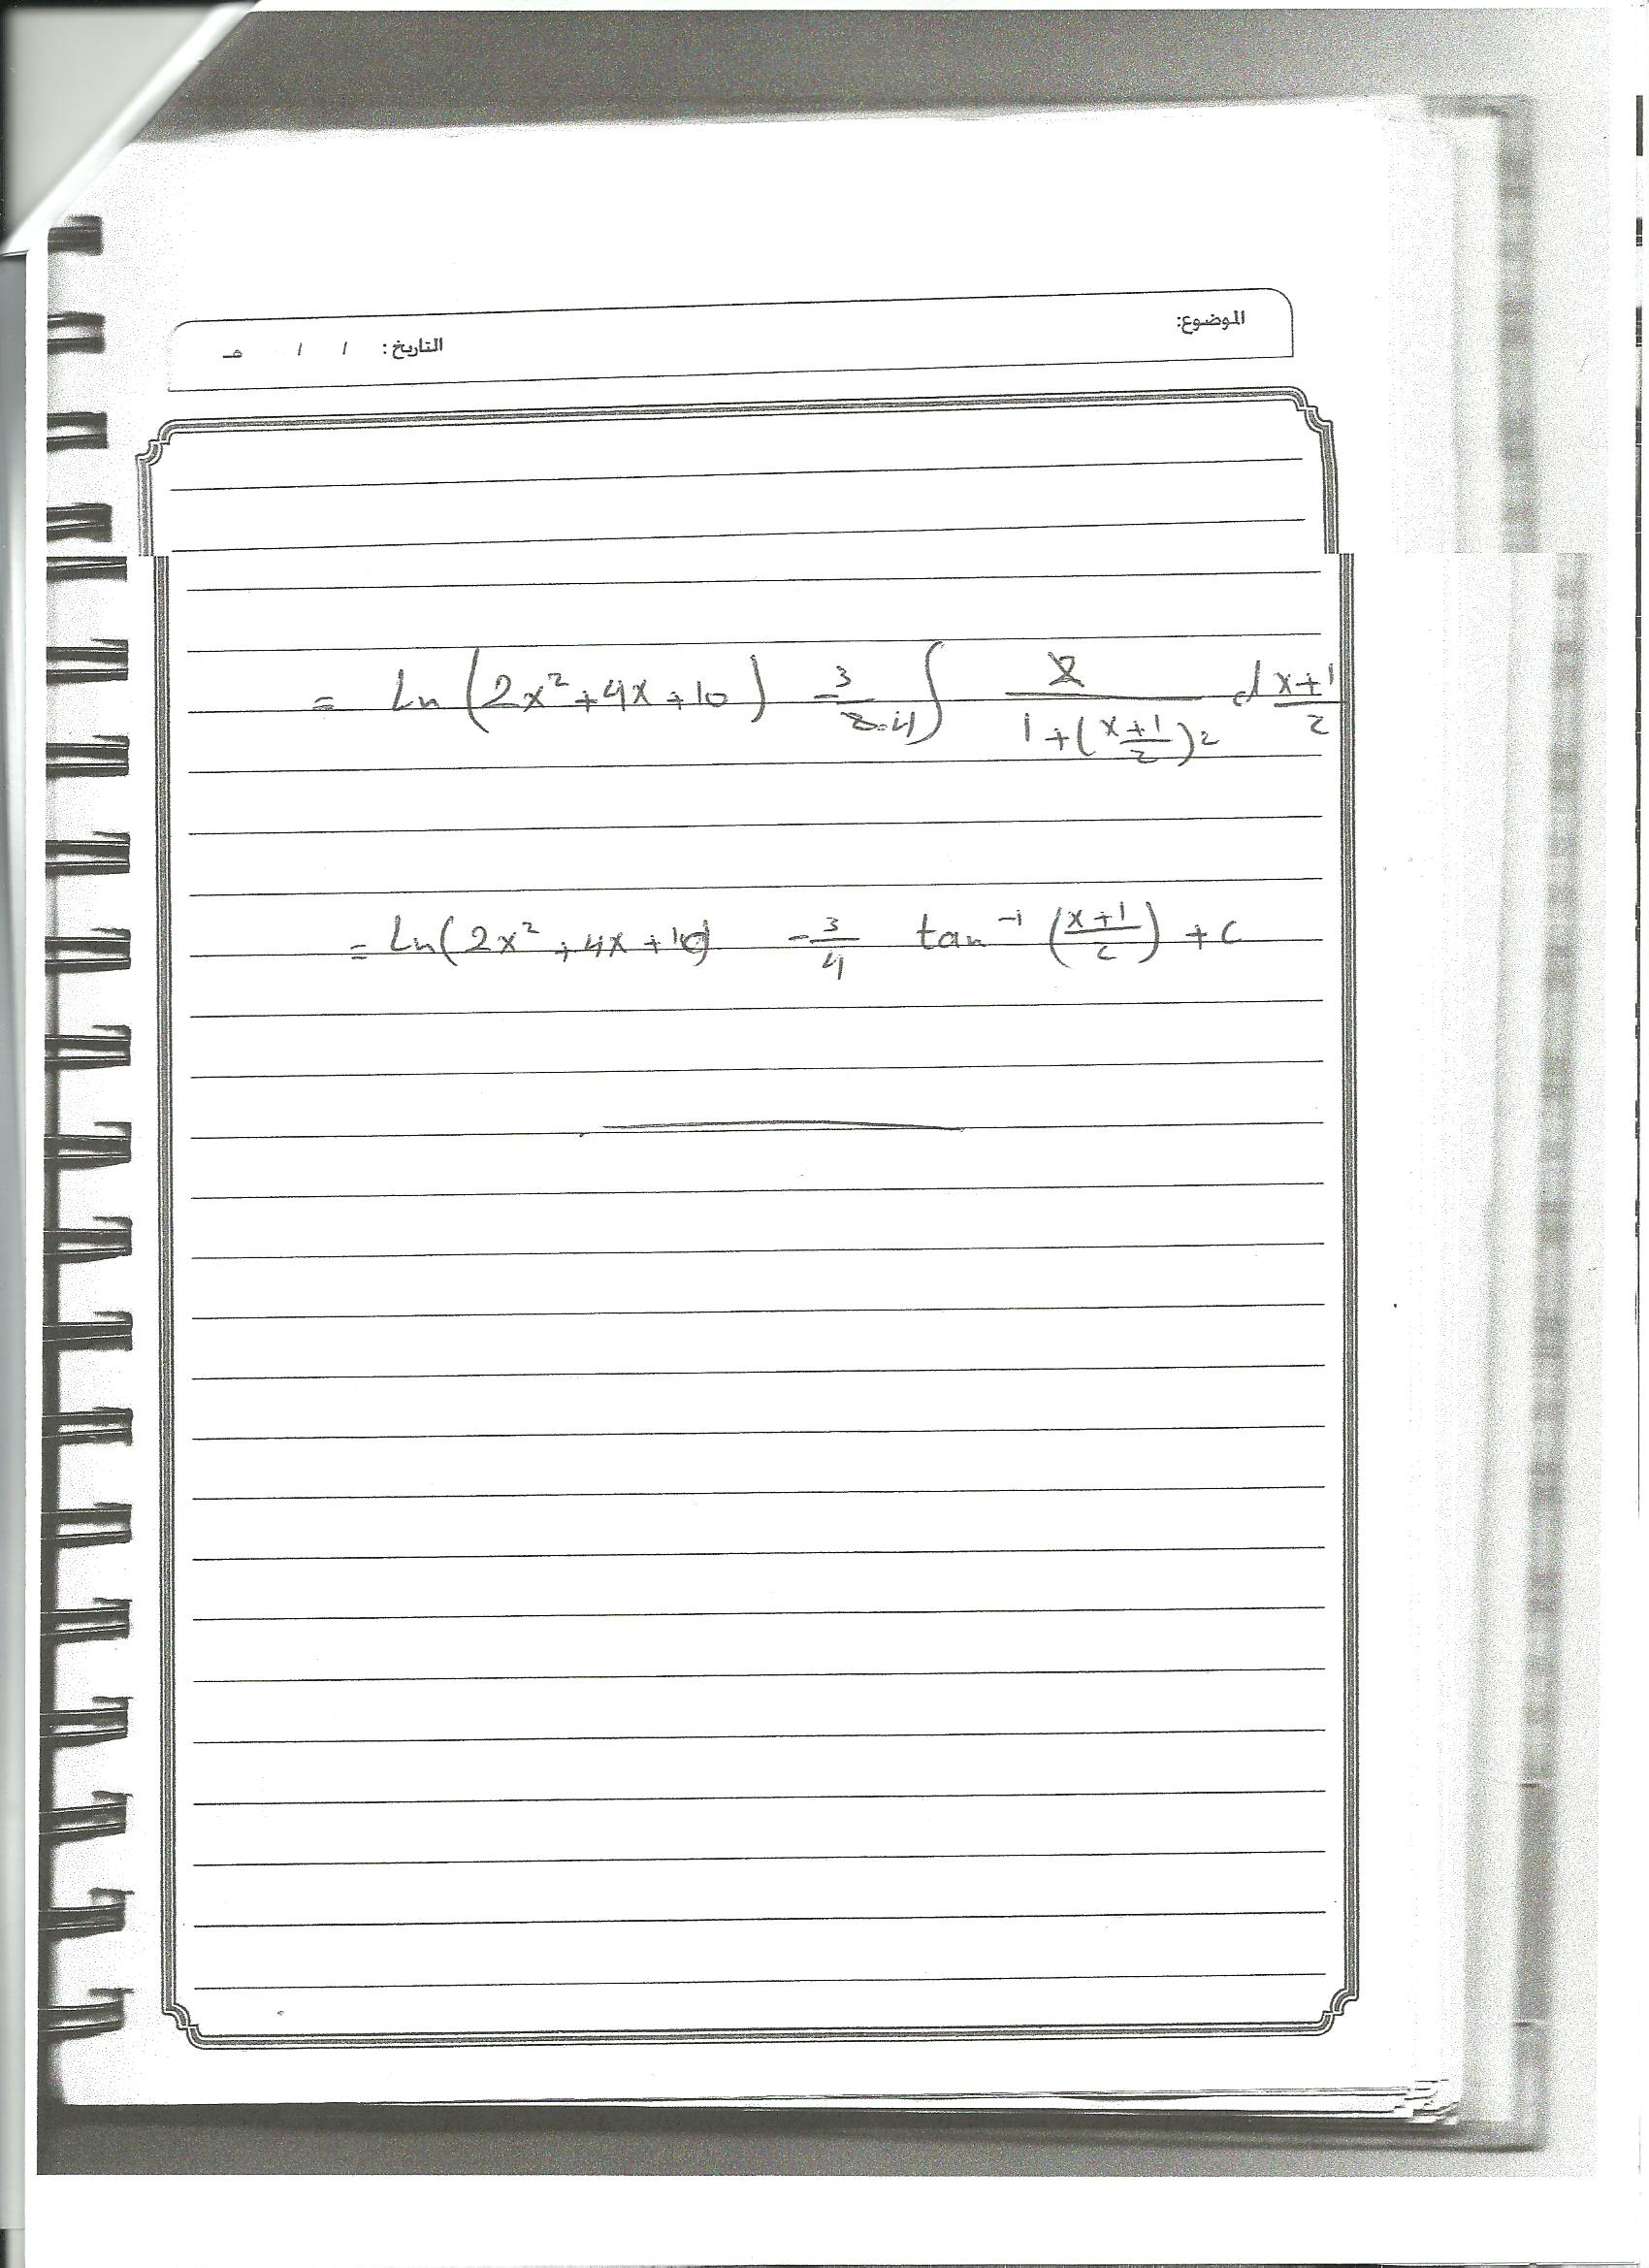 الموضوع:
التاريخ: / / هـ
= Ln (2x² + 4x + 10) - 3/(2·4) ∫ 2/(1 + ((x+1)/2)²) d (x+1)/2
= Ln (2x² + 4x + 10) - 3/4 tan⁻¹ ((x+1)/2) + c